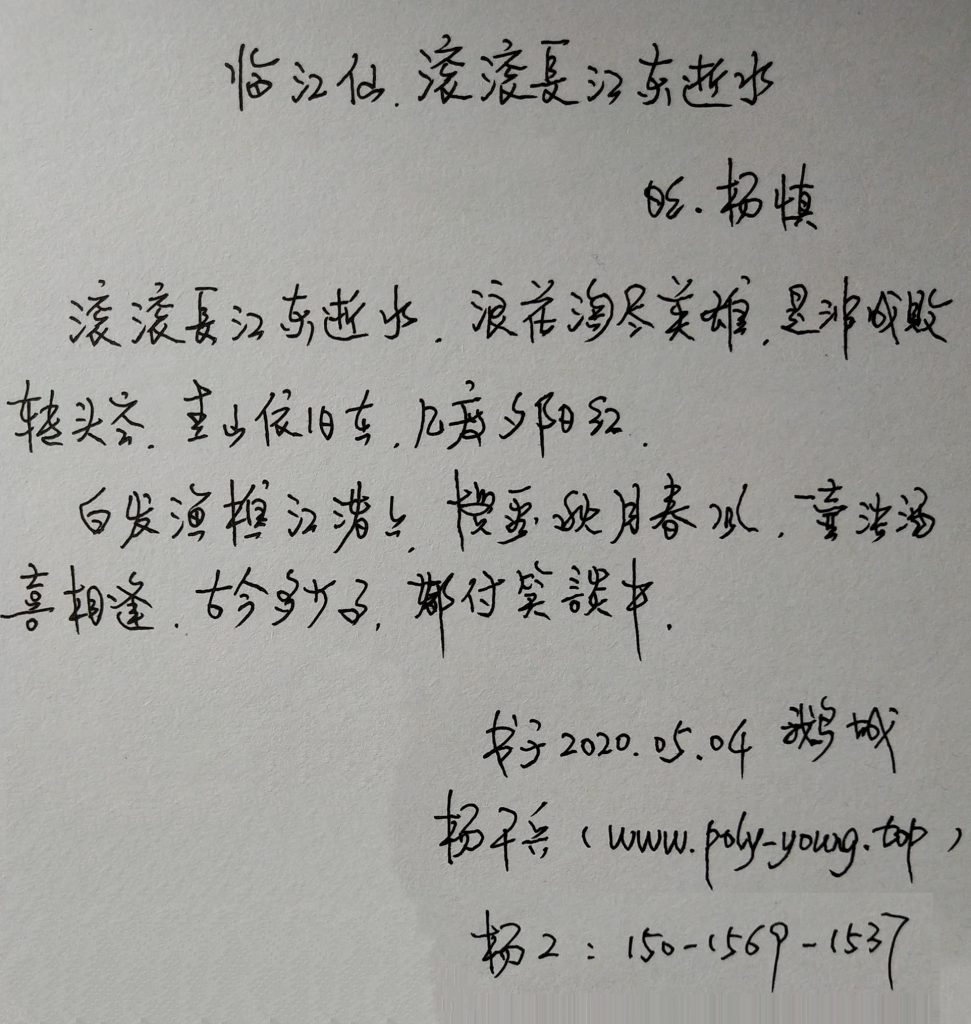 临江仙.滚滚長江东逝水
明.杨慎
滚滚長江东逝水.浪花淘尽英雄.是非成败
转头空.青山依旧在,几度夕阳红.
白发渔樵江渚上,惯看秋月春风.一壶浊酒
喜相逢.古今多少事,都付笑談中.
书于2020.05.04 鹅城
杨干兵(www.poly-young.top)
杨工:150-1569-1537